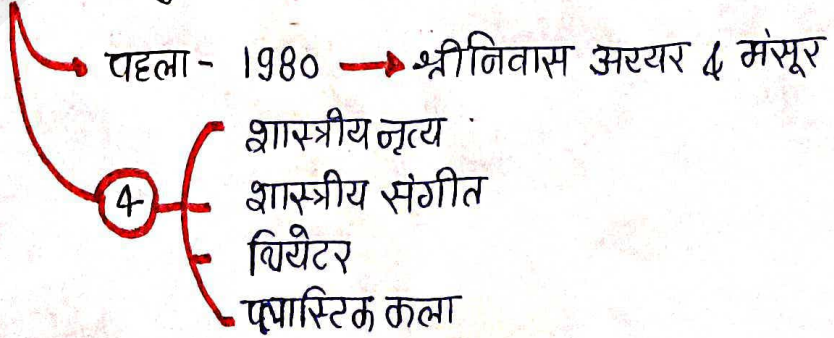 पहला - 1980 → श्रीनिवास अय्यर & मंसूर
शास्त्रीय नृत्य
4 शास्त्रीय संगीत
थियेटर
प्लास्टिक कला